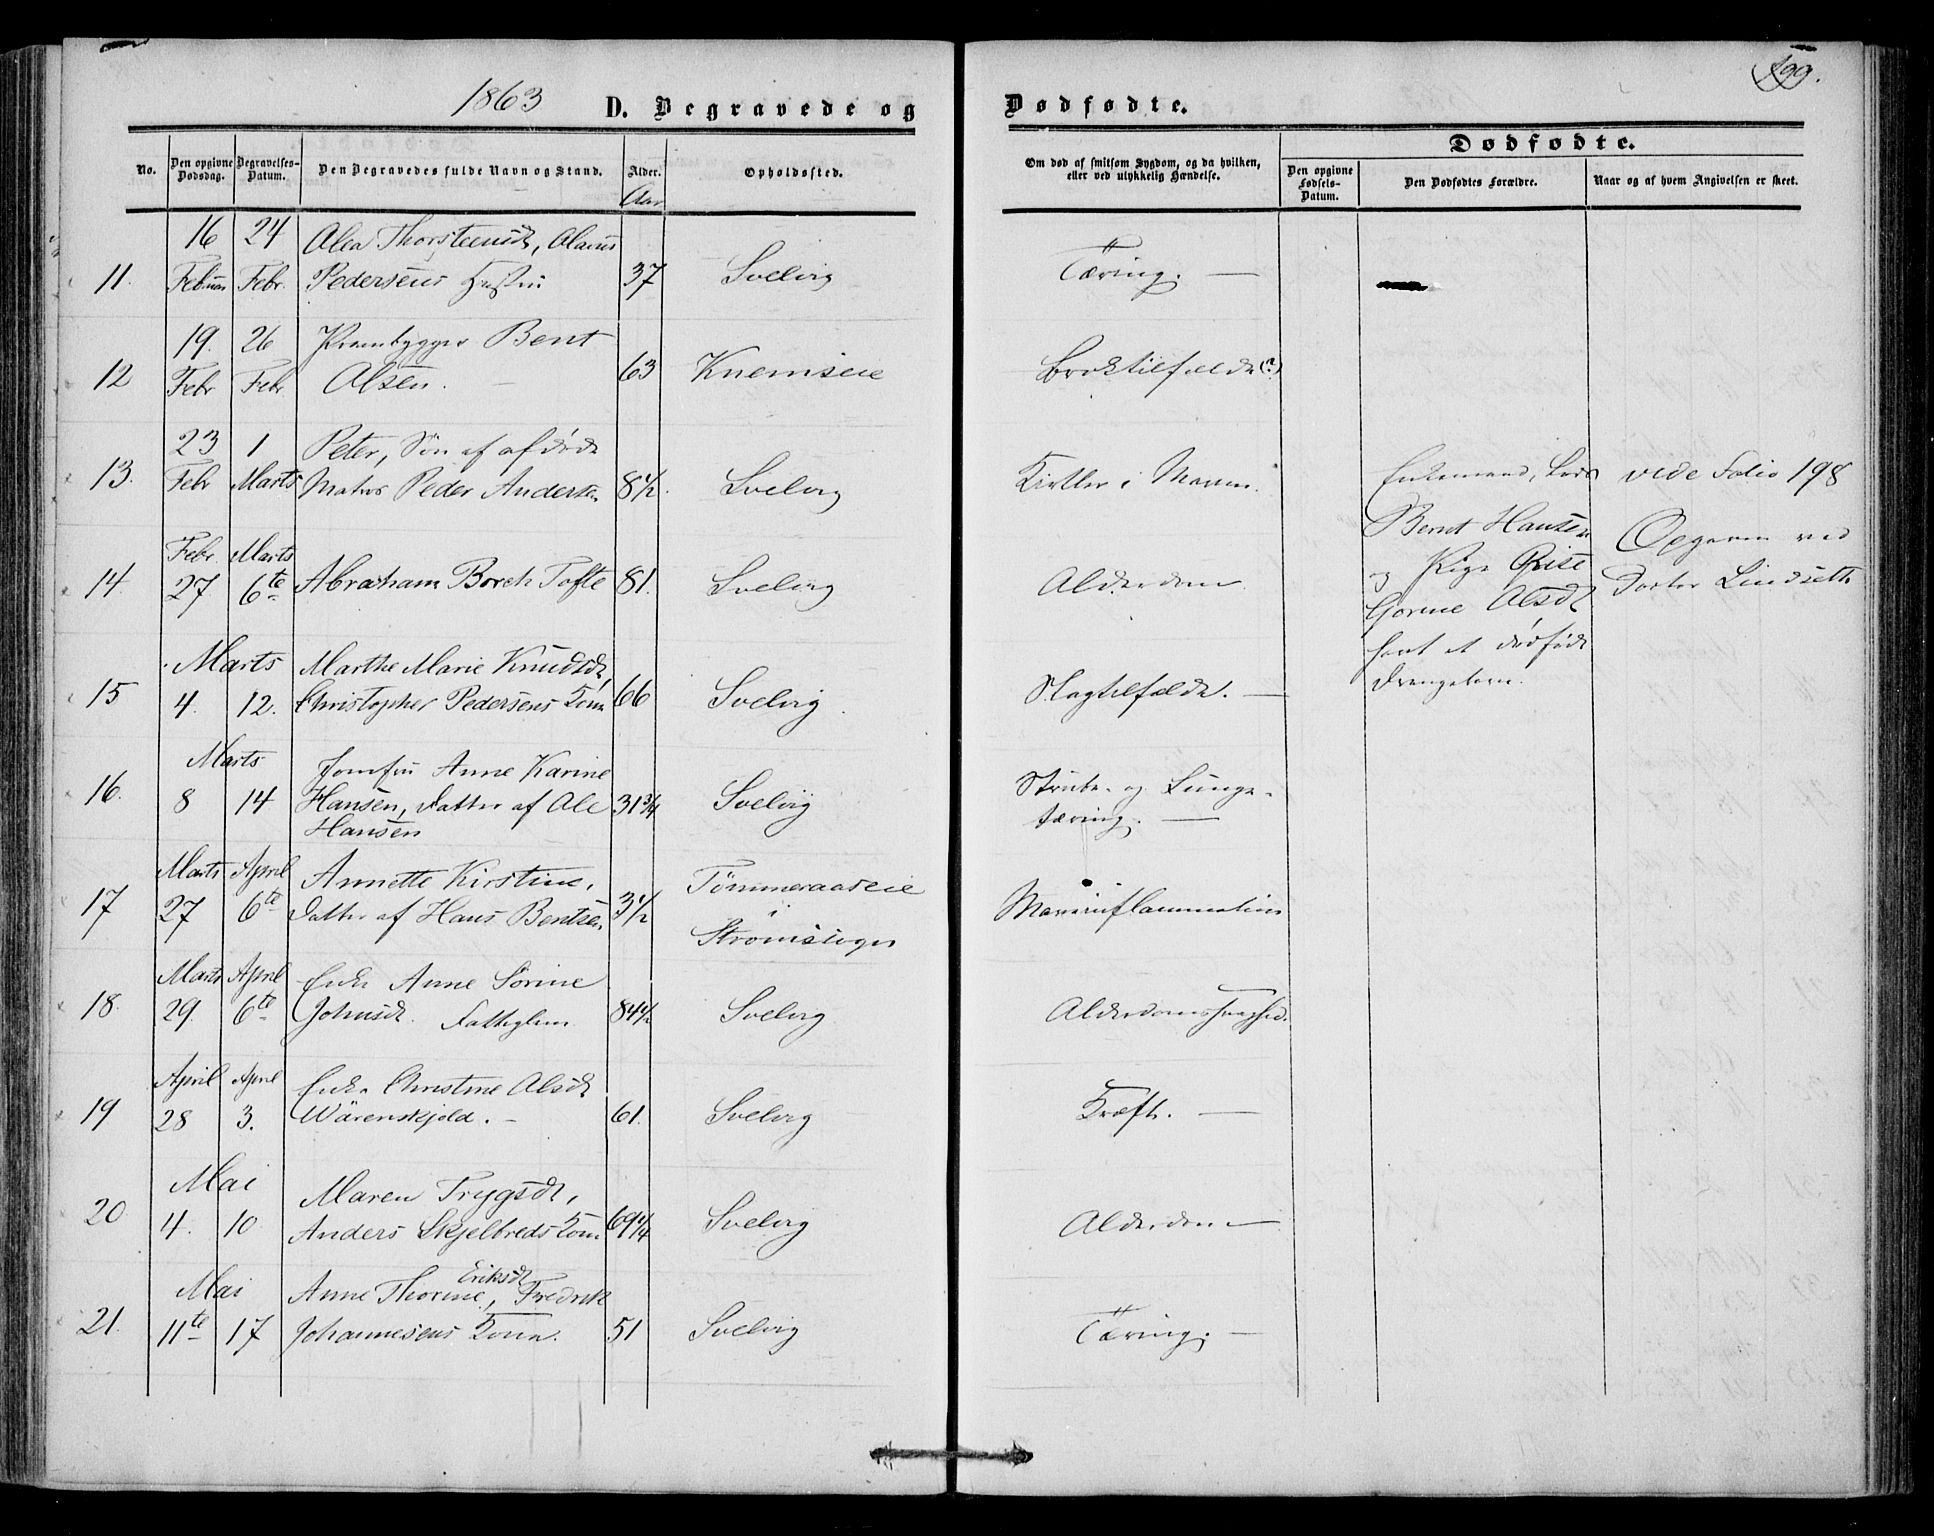 1863
D. Begravede og
Dødfødte.
199.
No.
Den opgivne Dødsdag.
Begravelses-Datum.
Den Begravedes fulde Navn og Stand.
Alder.
Aar
Opholdssted.
Om død af smitsom Sygdom, og da hvilken,
eller ved ulykkelig Hændelse.
Dødfødte.
Den opgivne Fødsels-Datum.
Den Dødfødtes Forældre.
Naar og af hvem Angivelsen er skeet.
16 24 Alea Thorsteensdt, Olaus
11. Februar Febr. Pedersens Hustru 37 Svelvig Tæring. —
19. 26 Prambygger Bent
12 Febr Febr Olsen. — 63 Knemseie Broktilfælde (?)
23 1 Peter, Søn af afdøde
13. Febr Marts Matros Peder Andersen 8 1/2. Svelvig Kirtler i Maven.
Febr Marts
14. 27 6te Abraham Borch Tofte 81. Svelvig Alderdom
Enkemand, Lods vide Folio 198
Bernt Hansen Opgaven ved
og Pige Grise Doctor Lindseth
Gorine Olsdt
havt et dødfødt
Drengebarn.
Marts Marthe Marie Knudsdt,
15 4. 12. Christopher Pedersens Kone 66 Svelvig Slagtilfælde. —
Marts Jomfru Anne Karine
16. 8 14 Hansen, Datter af Ole 31 3/4 Svelvig Strube- og Lunge-
Hansen tæring. —
Marts April Annette Kirstine, Tømmeraaseie
17 27 6te Datter af Hans Bentsen 3 1/2 i Maveinflammation
Strømsogn
Marts April Enke Anne Sørine
18. 29. 6te Johnsdt. Fattiglem 84 1/2 Svelvig Alderdomssvaghed.
April April Enke Christine Olsdt
19 28 3. Wärenskjold. — 61. Svelvig Kræft. —
Mai Maren Trygsdt,
20 4. 10 Anders Skjelbreds Kone 69 1/4 Svelvig Alderdom
Mai Anne Thorine Eriksdt, Fredrik
21. 11te 17 Johannesens Kone. 51 Svelvig Tæring. —